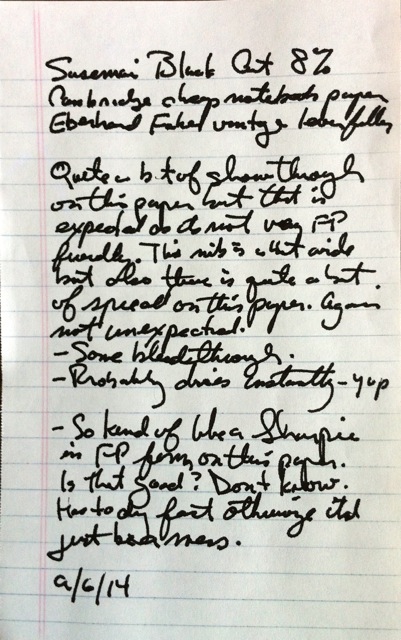 Susemai Black Cat 8%
Cambridge cheap notebook paper
Eberhard Faber vintage lever filler
Quite a bit of showthrough
on this paper but that is
expected as it's not very FP
friendly. This nib is a bit wide
but also there is quite a bit
of spread on this paper. Again
not unexpected.
- Some bleedthrough.
- Probably dries instantly - yup
- So kind of like a Sharpie
in FP form on this paper.
Is that good? Don't know.
Has to dry fast otherwise it'd
just be a mess.
9/6/14